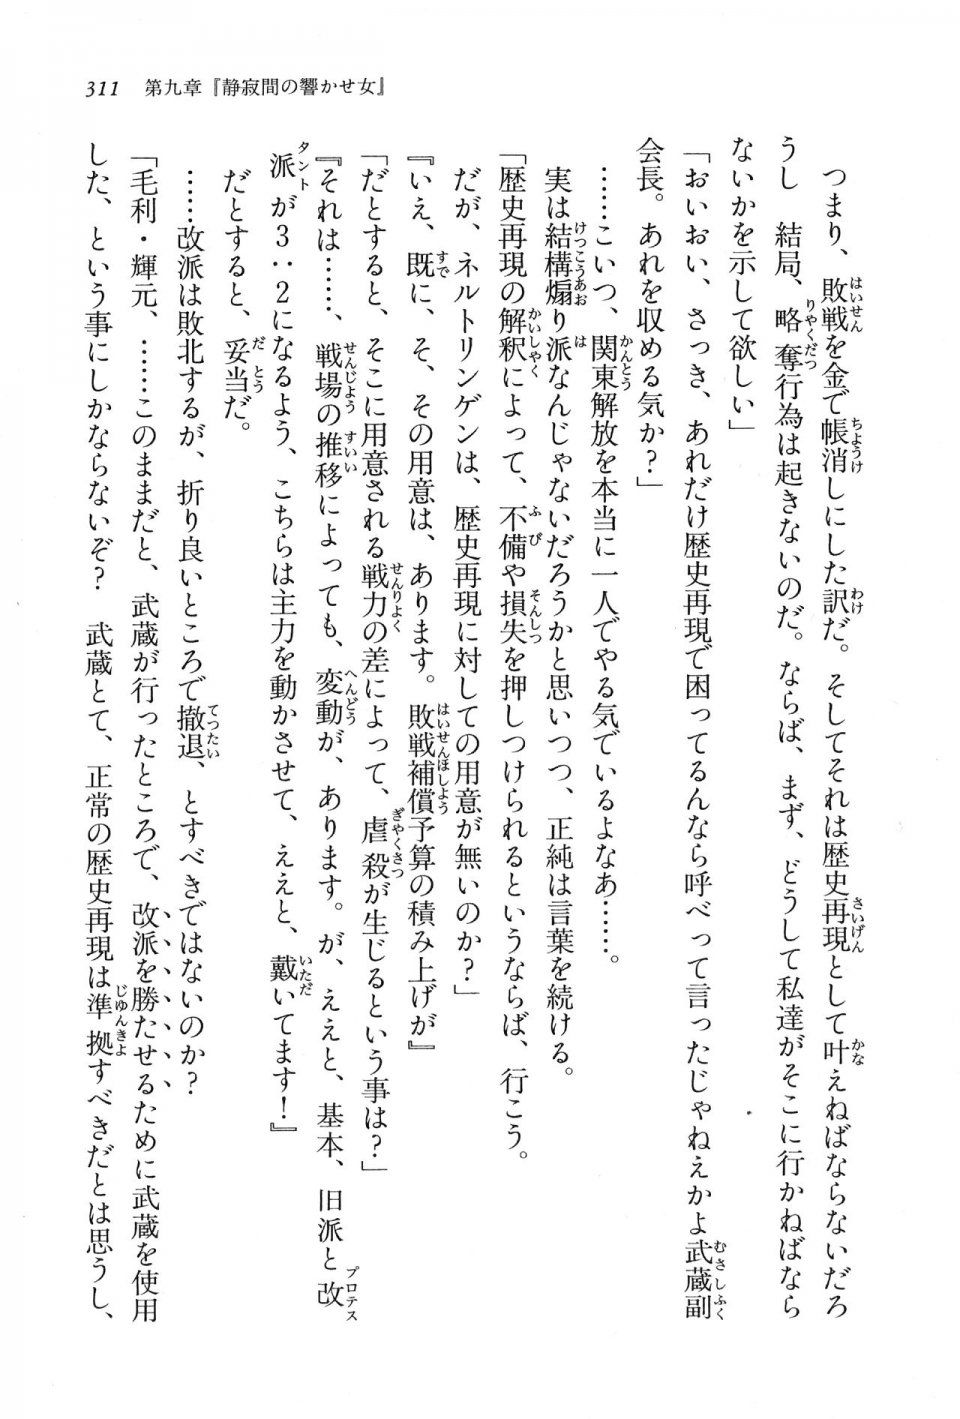 311　第九章『静寂間の響かせ女』
　つまり、敗戦を金で帳消しにした訳だ。そしてそれは歴史再現として叶えねばならないだろ
うし　結局、略奪行為は起きないのだ。ならば、まず、どうして私達がそこに行かねばなら
ないかを示して欲しい」
「おいおい、さっき、あれだけ歴史再現で困ってるんなら呼べって言ったじゃねえかよ武蔵副
会長。あれを収める気か？」
　……こいつ、関東解放を本当に一人でやる気でいるよなあ……。
　実は結構煽り派なんじゃないだろうかと思いつつ、正純は言葉を続ける。
「歴史再現の解釈によって、不備や損失を押しつけられるというならば、行こう。
　だが、ネルトリンゲンは、歴史再現に対しての用意が無いのか？」
『いえ、既に、そ、その用意は、あります。敗戦補償予算の積み上げが』
「だとすると、そこに用意される戦力の差によって、虐殺が生じるという事は？」
『それは……、戦場の推移によっても、変動が、あります。が、ええと、基本、旧派と改
派が3：2になるよう、こちらは主力を動かさせて、ええと、戴いてます！』
　だとすると、妥当だ。
　……改派は敗北するが、折り良いところで撤退、とすべきではないのか？
「毛利・輝元、……このままだと、武蔵が行ったところで、改派を勝たせるために武蔵を使用
した、という事にしかならないぞ？　武蔵とて、正常の歴史再現は準拠すべきだとは思うし、